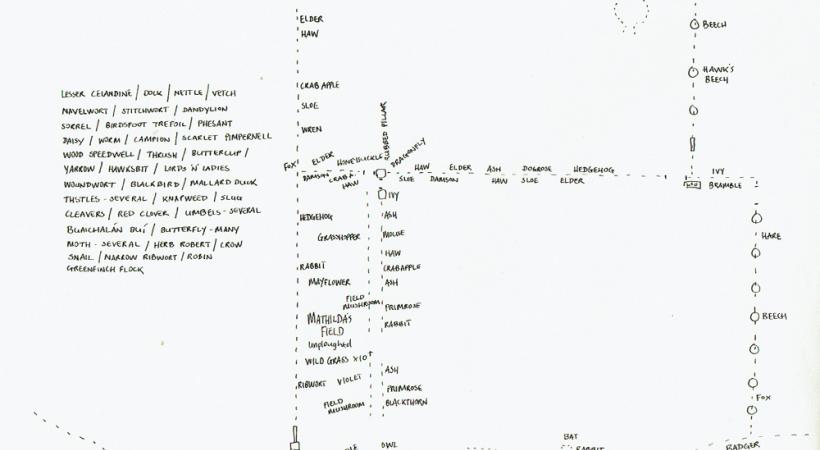 ELDER
HAW
CRAB APPLE
SLOE
WREN
BEECH
HAWK'S
BEECH
LESSER CELANDINE / DOCK / NETTLE / VETCH
NAVELWORT / STITCHWORT / DANDYLION
SORREL / BIRDSFOOT TREFOIL / PHESANT
DAISY / WORM / CAMPION / SCARLET PIMPERNELL
WOOD SPEEDWELL / THRUSH / BUTTERCUP /
YARROW / HAWKSBIT / LORDS 'N' LADIES
WOUNDWORT / BLACKBIRD / MALLARD DUCK
THSTLES - SEVERAL / KNAPWEED / SLUG
CLEAVERS / RED CLOVER / UMBELS - SEVERAL
BUACHALÁN BUÍ / BUTTERFLY - MANY
MOTH - SEVERAL / HERB ROBERT / CROW
SNAIL / NARROW RIBWORT / ROBIN
GREENFINCH FLOCK
FOX
ELDER HONEYSUCKLE
RUBBED PILLAR
DRAGONFLY
HAW ELDER ASH DOGROSE HEDGEHOG
DAMSON CRAB A.
HAW
SLOE DAMSON HAW SLOE ELDER
IVY
BRAMBLE
IVY
HEDGEHOG
ASH
GRASSHOPPER
MOUSE
HARE
HAW
RABBIT
CRABAPPLE
MAYFLOWER
ASH
FIELD
MUSHROOM
PRIMROSE
MATHILDA'S
FIELD
Unploughed
RABBIT
BEECH
WILD GRASS X10+
ASH
RIBWORT VIOLET
PRIMROSE
FIELD
MUSHROOM
BLACKTHORN
FOX
OWL
BAT
RABBIT
BADGER